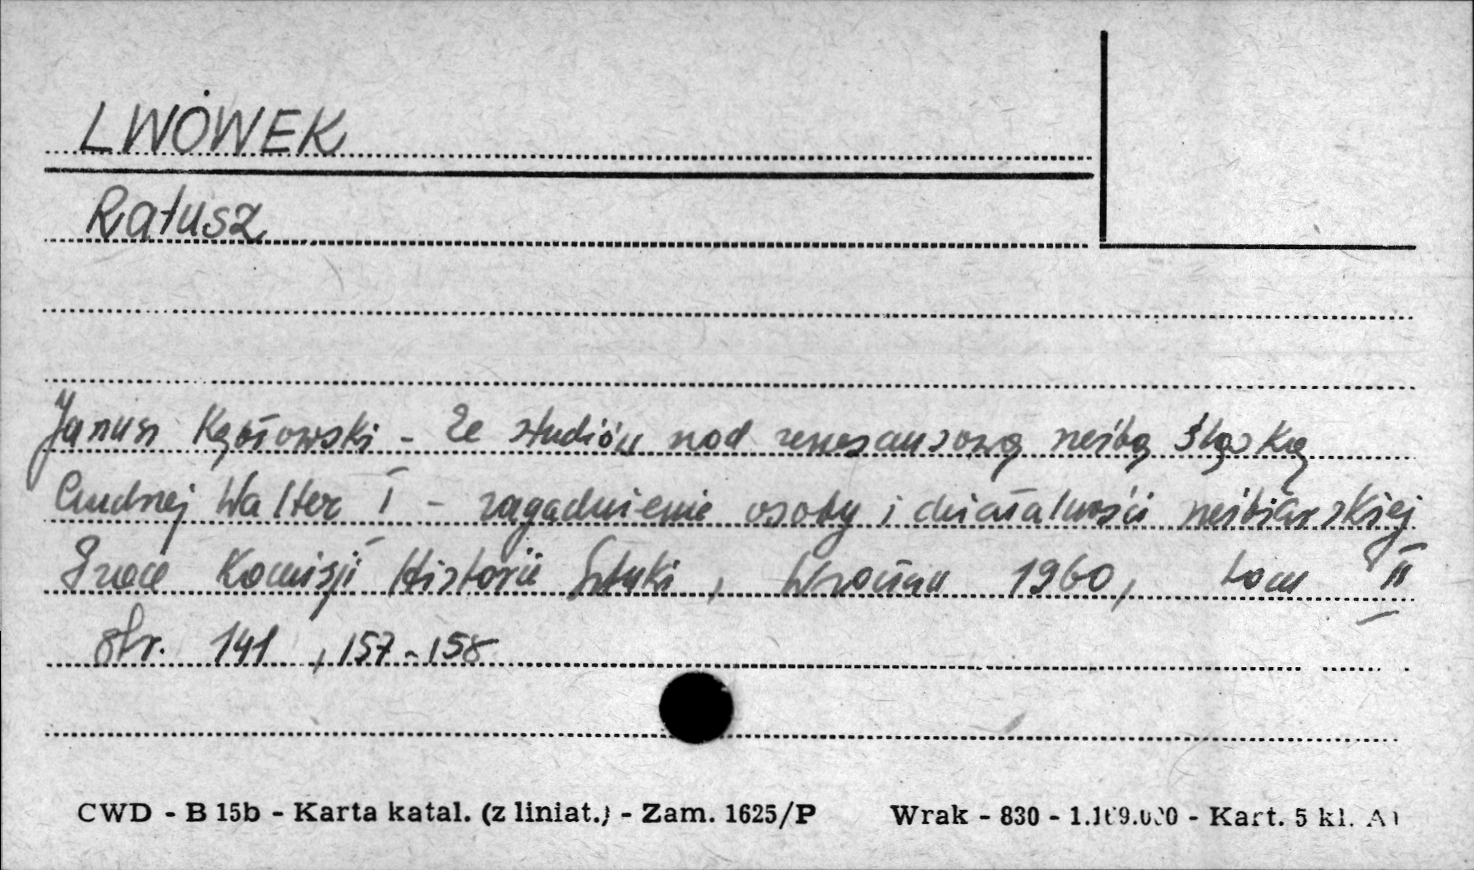 LWÓWEK
Ratusz
Janusz Kębłowski - Ze studiów nad renesansową rzeźbą śląską
Andrzej Walter I - zagadnienie osoby i działalności rzeźbiarskiej
Prace Komisji Historii Sztuki, Wrocław 1960, tom II
str. 141, 157-158
CWD - B 15b - Karta katal. (z liniat.) - Zam. 1625/P Wrak - 830 - Kart. 5 kl.